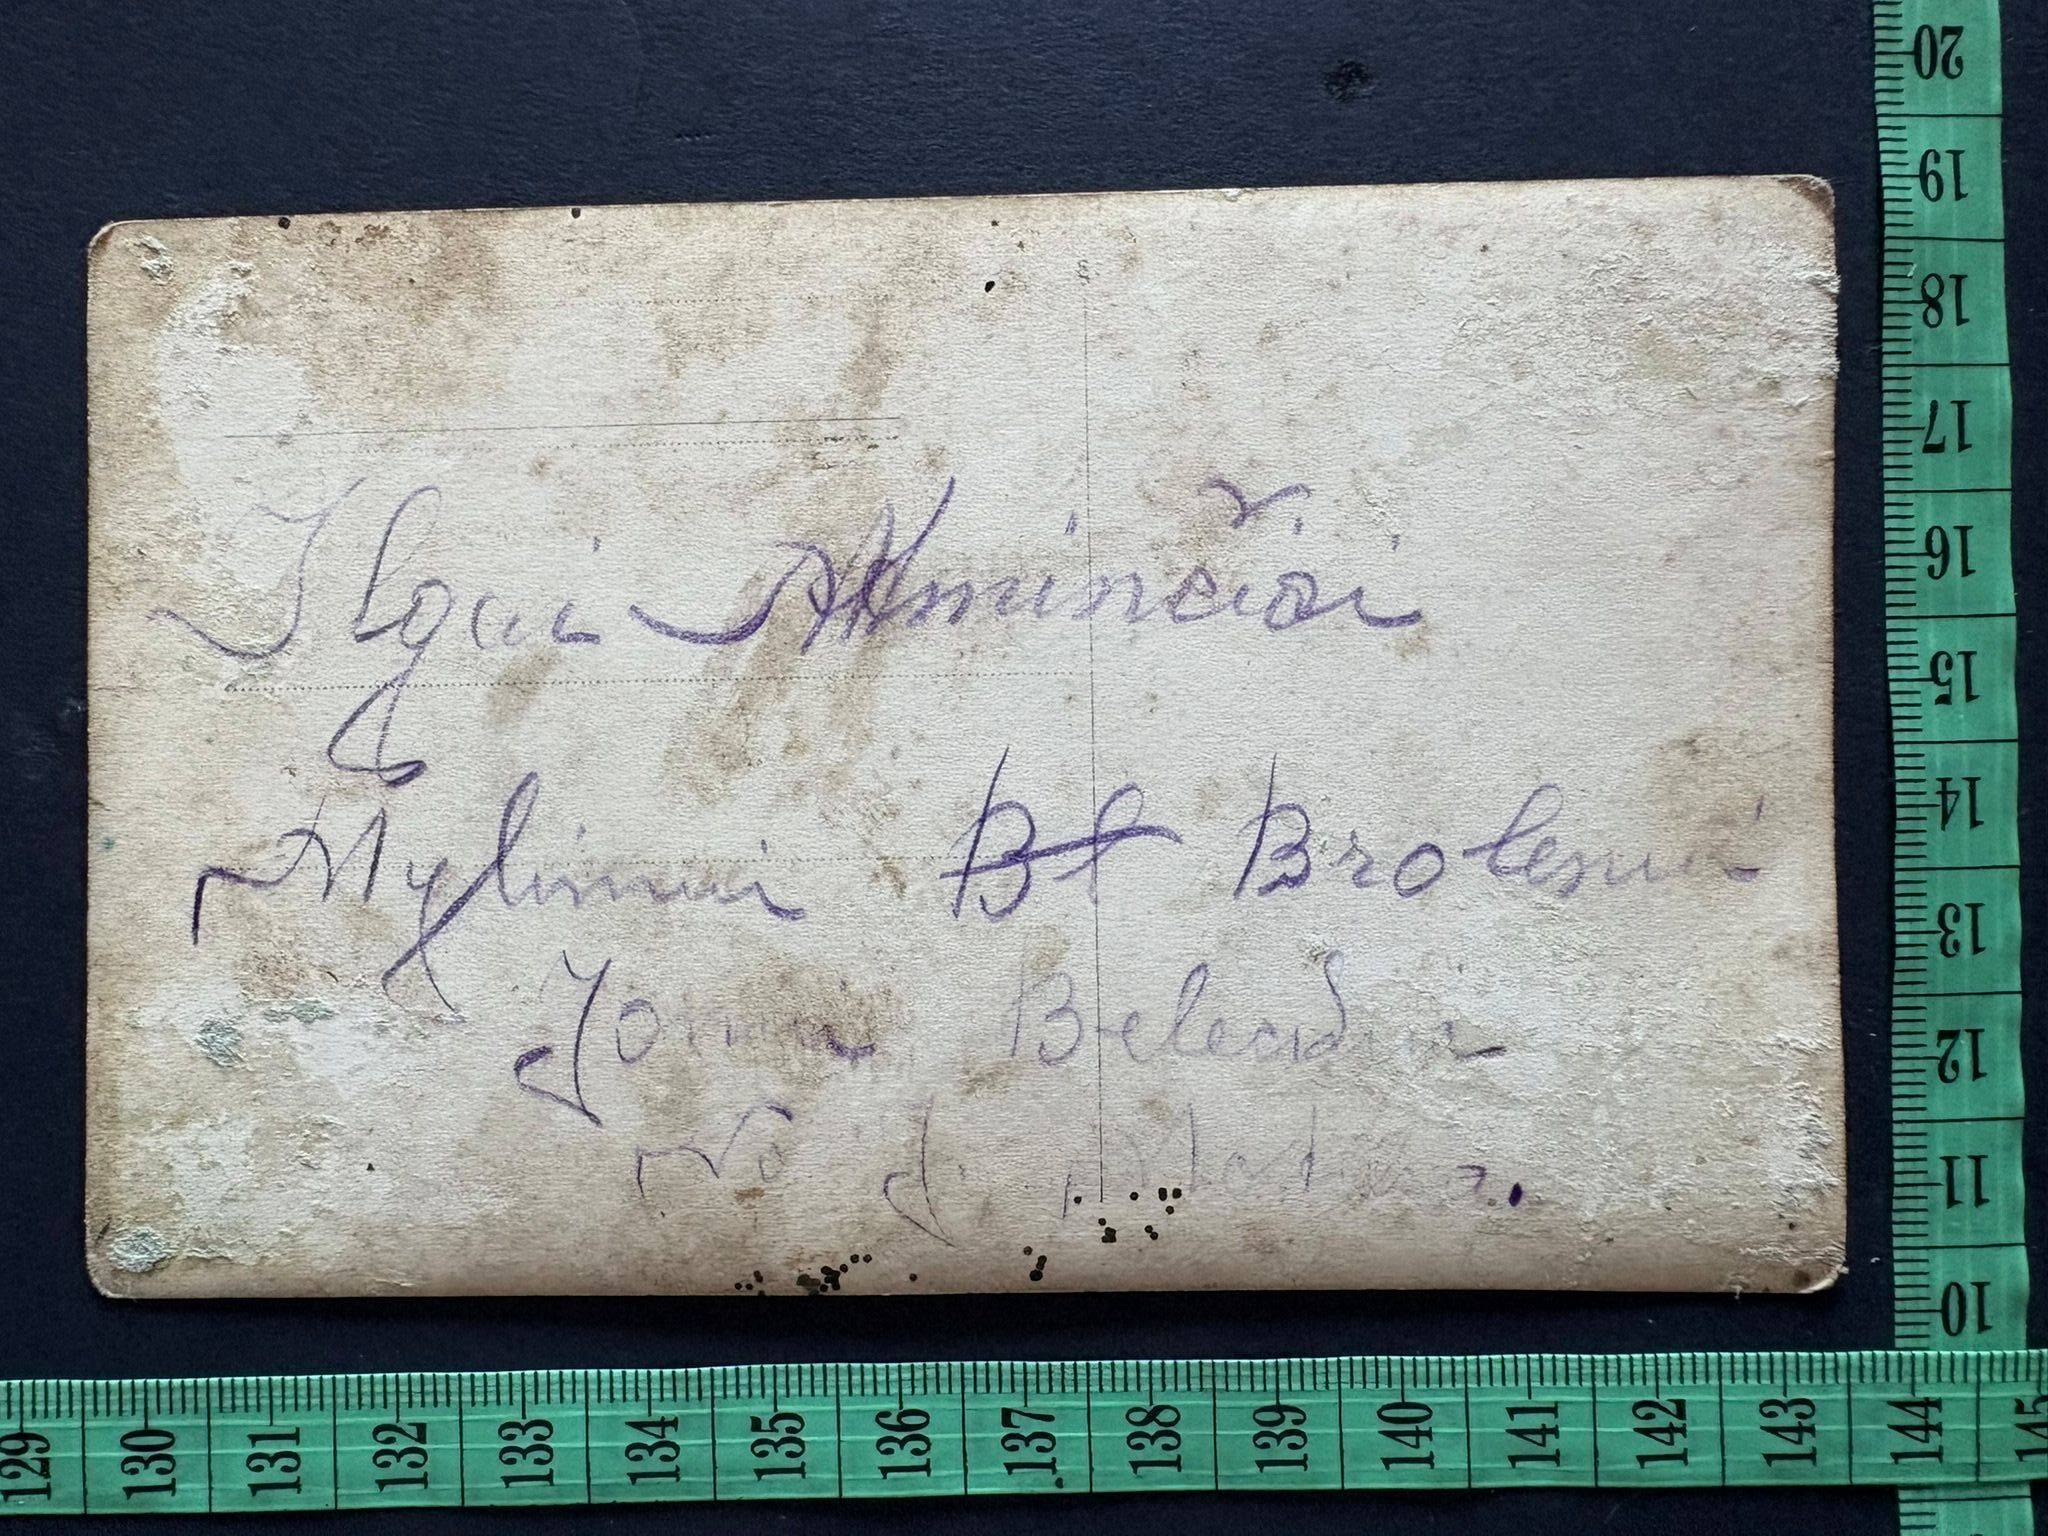 Ilgai Atminčiai
Mylimai Bt Brolenai
Jonui
No J.
20
19
18
17
16
15
14
13
12
11
10
129 130 131 132 133 134 135 136 137 138 139 140 141 142 143 144 145